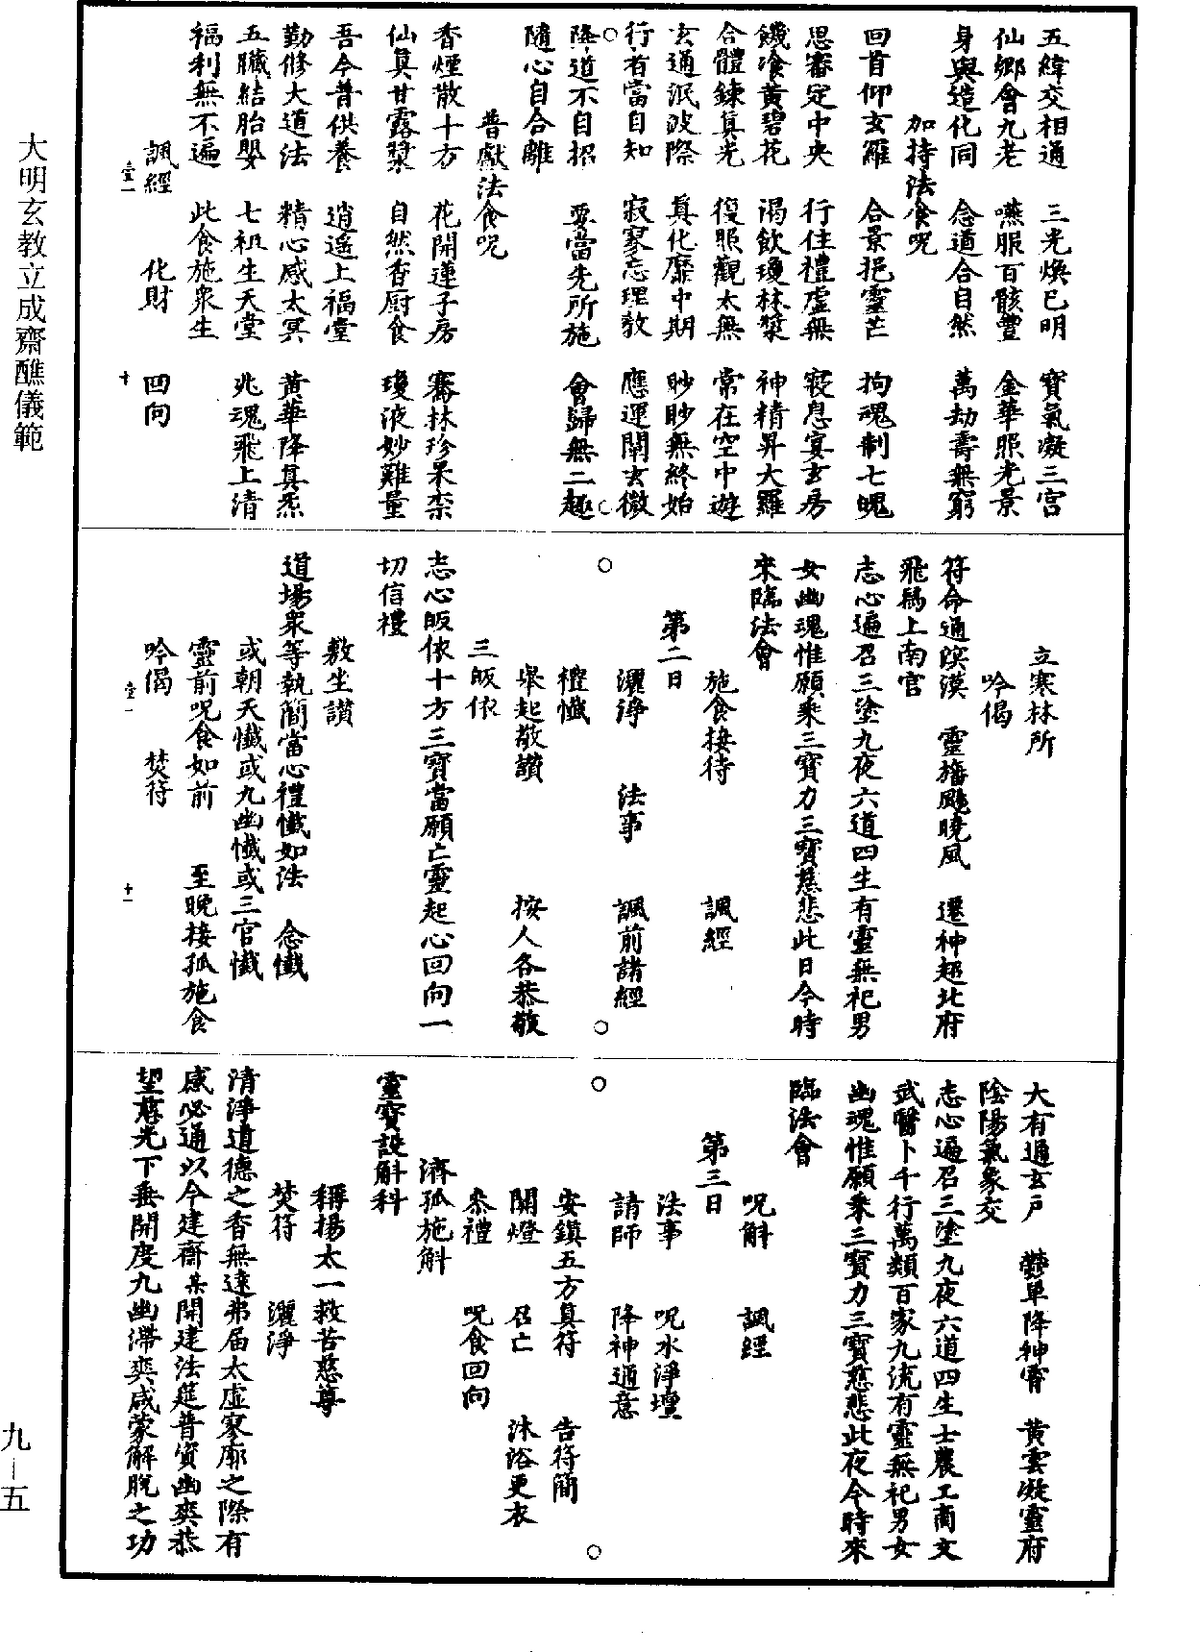 五緯交相通　三光煥已明　寶氣凝三宮
仙鄉會九老　嚥服百骸豐　金華照光景
身與造化同　念道合自然　萬劫壽無窮
加持法食呪
回首仰玄羅　合景挹靈芒　拘魂制七魄
思審定中央　行住禮虛無　寢息宴玄房
饑飡黃碧花　渴飲瓊林漿　神精昇大羅
合體鍊真光　復照觀太無　常在空中遊
玄通泯波際　真化靡中期　眇眇無終始
行有當自知　寂寥忘理教　應運闡玄微
降道不自招　要當先所施　會歸無二趣
隨心自合離
普獻法食呪
香煙散十方　花開蓮子房　騫林珍果柰
仙真甘露漿　自然香厨食　瓊液妙難量
吾今普供養　逍遥上福堂
勤修大道法　精心感太冥　黃華降真炁
五臟結胎嬰　七祖生天堂　兆魂飛上清
福利無不遍　此食施衆生
諷經　化財　回向
壹一　十
立寒林所
吟偈
符命通溟漠　靈旛颺曉風　遷神超北府
飛舄上南宮
志心遍召三塗九夜六道四生有靈無祀男
女幽魂惟願乘三寶力三寶慈悲此日今時
來臨法會
施食接待　諷經
第二日
灑淨　法事　諷前諸經
禮懺
舉起敬讚　按人各恭敬
三皈依
志心皈依十方三寶當願亡靈起心回向一
切信禮
敷坐讚
道場衆等執簡當心禮懺如法　念懺
或朝天懺或九幽懺或三官懺
靈前呪食如前　至晚接孤施食
吟偈　焚符
壹一　十一
大有通玄戶　鬱單降神霄　黃雲凝靈府
陰陽氣象交
志心遍召三塗九夜六道四生士農工商文
武醫卜千行萬類百家九流有靈無祀男女
幽魂惟願乘三寶力三寶慈悲此夜今時來
臨法會
呪斛　諷經
第三日
法事　呪水淨壇
請師　降神通意
安鎮五方真符　告符簡
開燈　召亡　沐浴更衣
參禮　呪食回向
濟孤施斛
靈寶設斛科
稱揚太一救苦慈尊
焚符　灑淨
清淨道德之香無遠弗届太虛寥廓之際有
感必通以今建齋某開建法筵普資幽爽恭
望慈光下垂開度九幽滯爽咸蒙解脫之功
大明玄教立成齋醮儀範
九—五